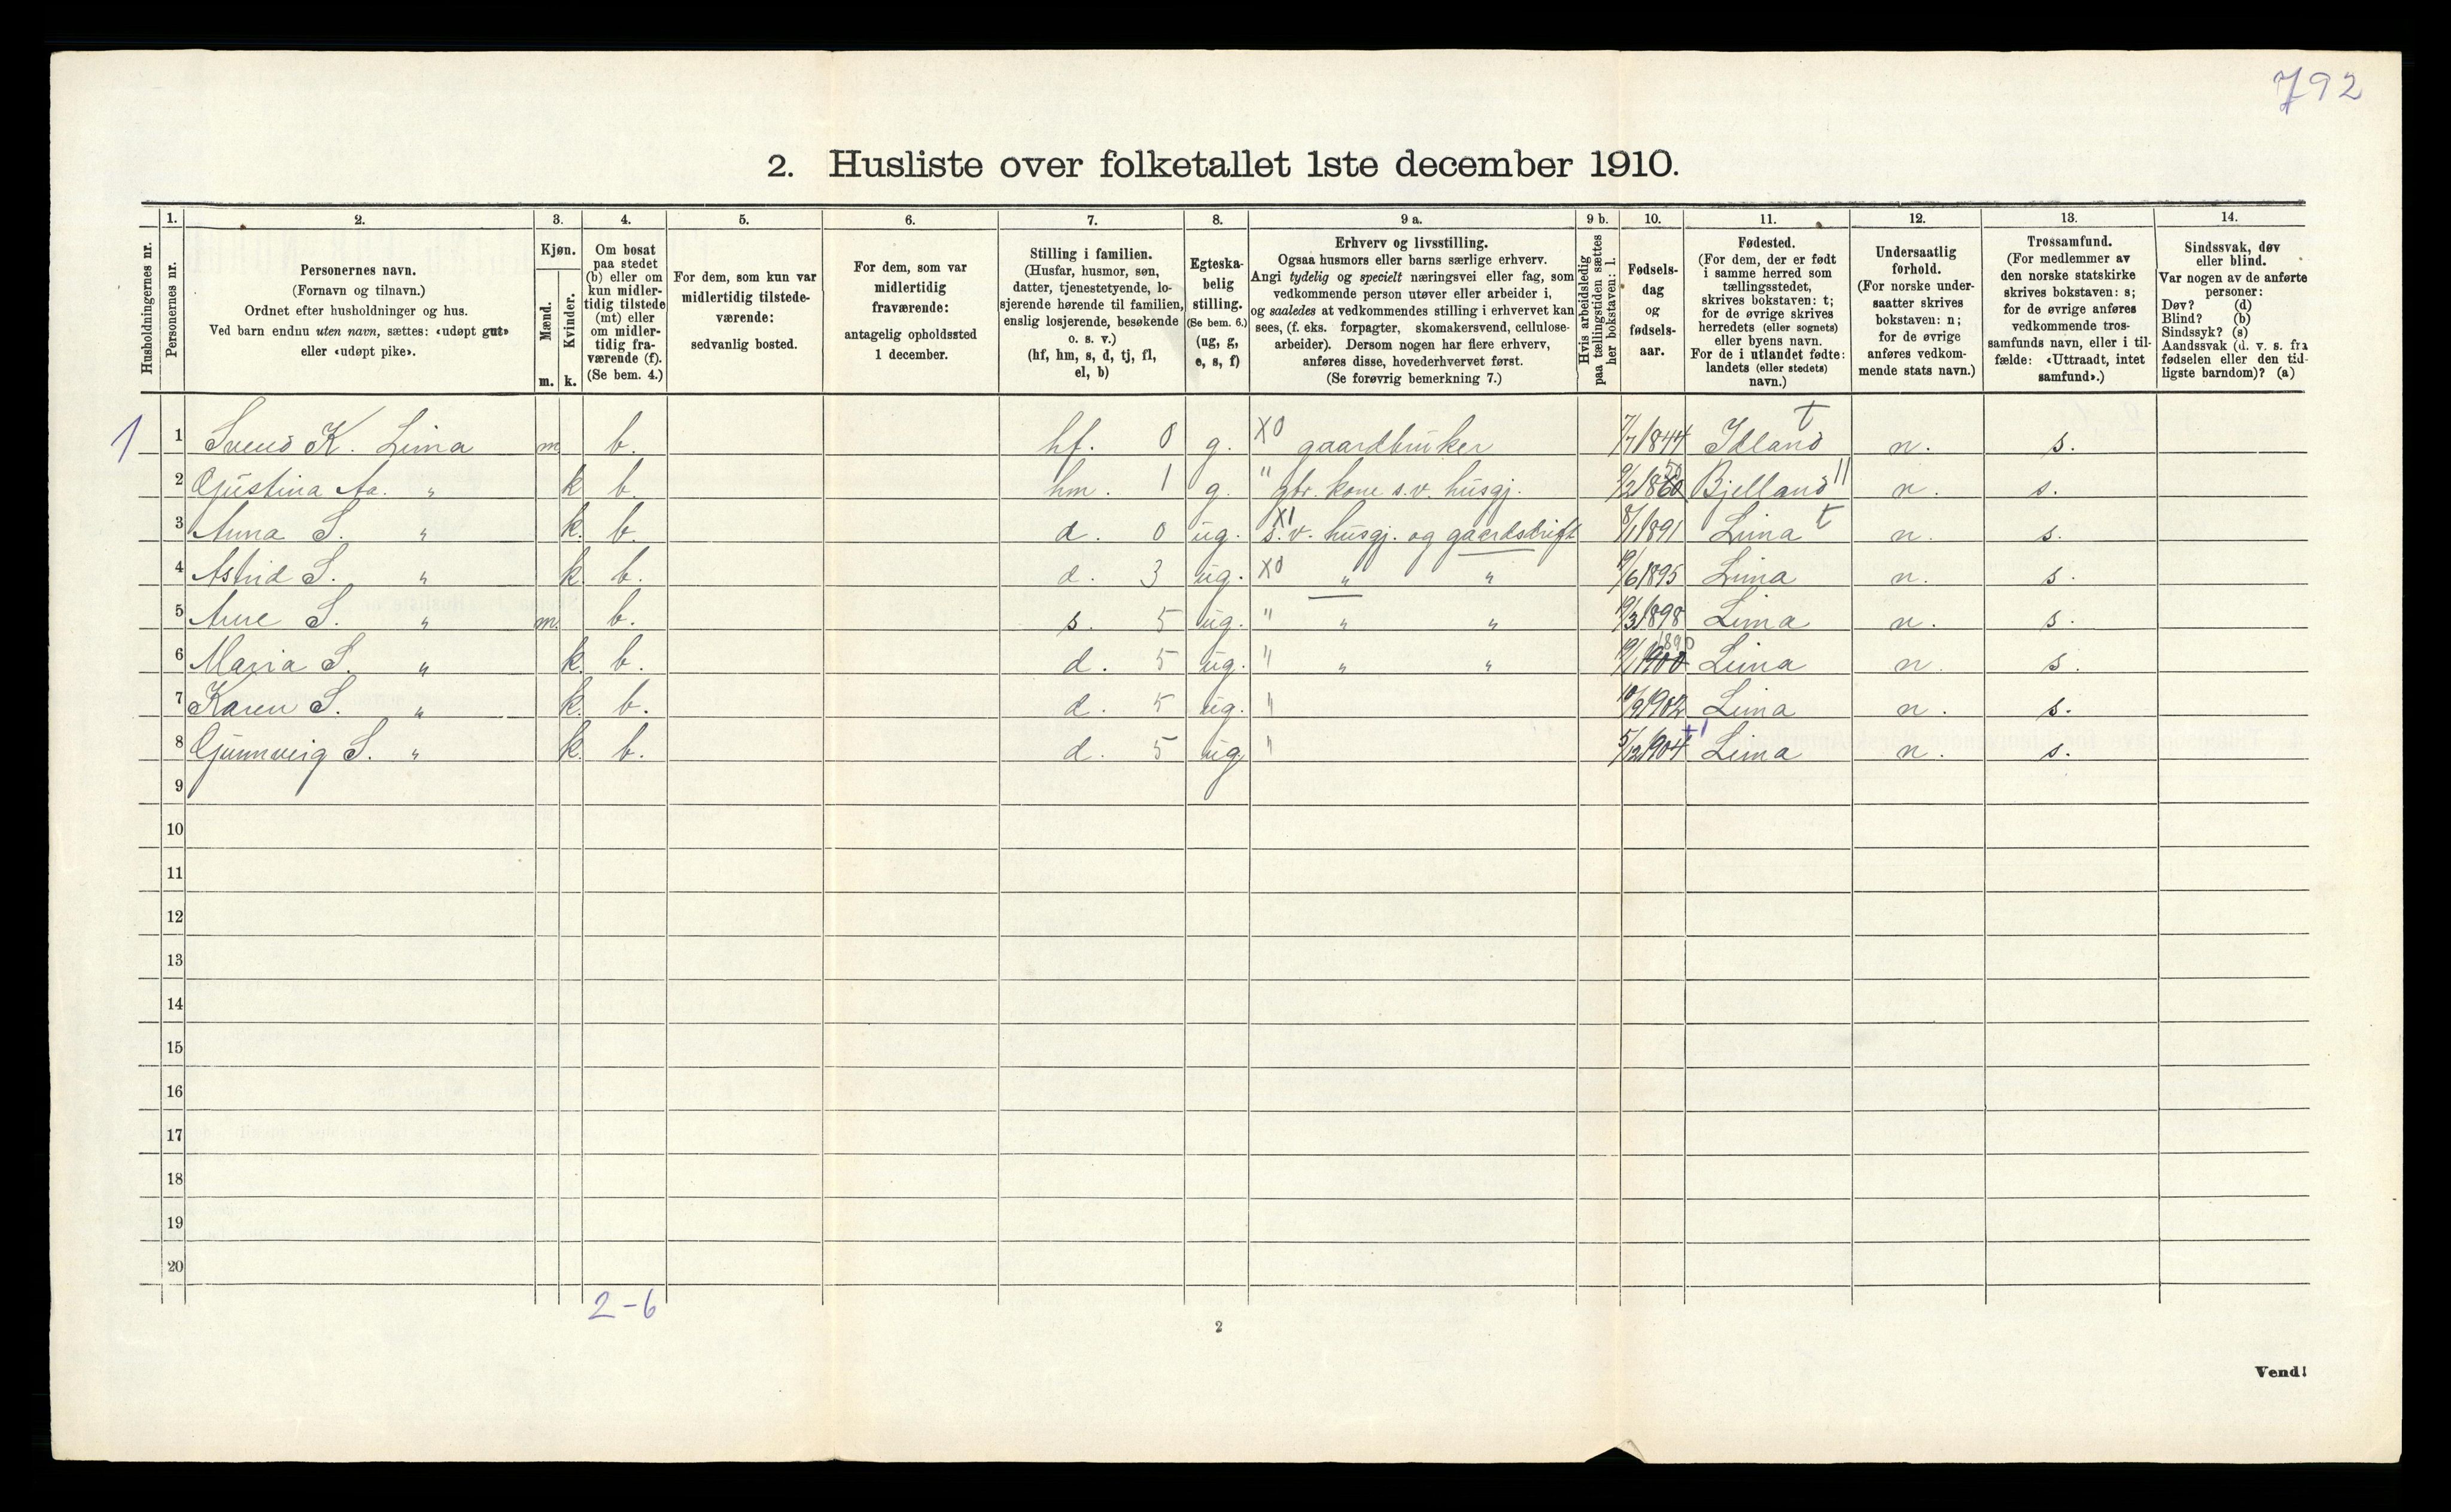 792
2. Husliste over folketallet 1ste december 1910.
Husholdningernes nr.
1.
Personernes nr.
2.
Personernes navn.
(Fornavn og tilnavn.)
Ordnet efter husholdninger og hus.
Ved barn endnu uten navn, sættes: «udøpt gut»
eller «udøpt pike».
3.
Kjøn.
Mænd.
Kvinder.
m. k.
4.
Om bosat
paa stedet
(b) eller om
kun midler-
tidig tilstede
(mt) eller
om midler-
tidig fra-
værende (f).
(Se bem. 4.)
5.
For dem, som kun var
midlertidig tilstede-
værende:
sedvanlig bosted.
6.
For dem, som var
midlertidig
fraværende:
antagelig opholdssted
1 december.
7.
Stilling i familien.
(Husfar, husmor, søn,
datter, tjenestetyende, lo-
sjerende hørende til familien,
enslig losjerende, besøkende
o. s. v.)
(hf, hm, s, d, tj, fl,
el, b)
8.
Egteska-
belig
stilling.
(Se bem. 6.)
(ug, g,
e, s, f)
9 a.
Erhverv og livsstilling.
Ogsaa husmors eller barns særlige erhverv.
Angi tydelig og specielt næringsvei eller fag, som
vedkommende person utøver eller arbeider i,
og saaledes at vedkommendes stilling i erhvervet kan
sees, (f. eks. forpagter, skomakersvend, cellulose-
arbeider). Dersom nogen har flere erhverv,
anføres disse, hovederhvervet først.
(Se forøvrig bemerkning 7.)
9 b.
Hvis arbeidsledig
paa tællingstiden sættes
her bokstaven: l.
10.
Fødsels-
dag
og
fødsels-
aar.
11.
Fødested.
(For dem, der er født
i samme herred som
tællingsstedet,
skrives bokstaven: t;
for de øvrige skrives
herredets (eller sognets)
eller byens navn.
For de i utlandet fødte:
landets (eller stedets)
navn.)
12.
Undersaatlig
forhold.
(For norske under-
saatter skrives
bokstaven: n;
for de øvrige
anføres vedkom-
mende stats navn.)
13.
Trossamfund.
(For medlemmer av
den norske statskirke
skrives bokstaven: s;
for de øvrige anføres
vedkommende tros-
samfunds navn, eller i til-
fælde: «Uttraadt, intet
samfund».)
14.
Sindssvak, døv
eller blind.
Var nogen av de anførte
personer:
Døv? (d)
Blind? (b)
Sindssyk? (s)
Aandssvak (d. v. s. fra
fødselen eller den tid-
ligste barndom)? (a)
1 1 Svend K. Lima m b. hf. 0 g. X0 gaardbruker 7/7 1844 Idland t n. s.
2 Gjustina Aa. " k b. hm. 1 g. " gbr. kone s.v. husgj. 9/2 1860 50 Bjelland 11 n. s.
3 Anna S. " k. b. d. 0 ug. X1 s.v. husgj. og gaardsdrift 8/1 1891 Lima t n. s.
4 Astrid S. " k. b. d. 3 ug. X0 " " /6 1895 Lima n. s.
5 Arne S. " m. b. s. 5 ug. " " " /3 1898 Lima n. s.
6 Maria S. " k. b. d. 5 ug. " " " /1 1900 Lima n. s.
7 Karen S. " k. b. d. 5 ug. " 10/9 1902 Lima n. s.
8 Gjunnveig S. " k. b. d. 5 ug " 5/12 1904 +1 Lima n. s.
9
10
11
12
13
14
15
16
17
18
19
20
2-6
2
Vend!